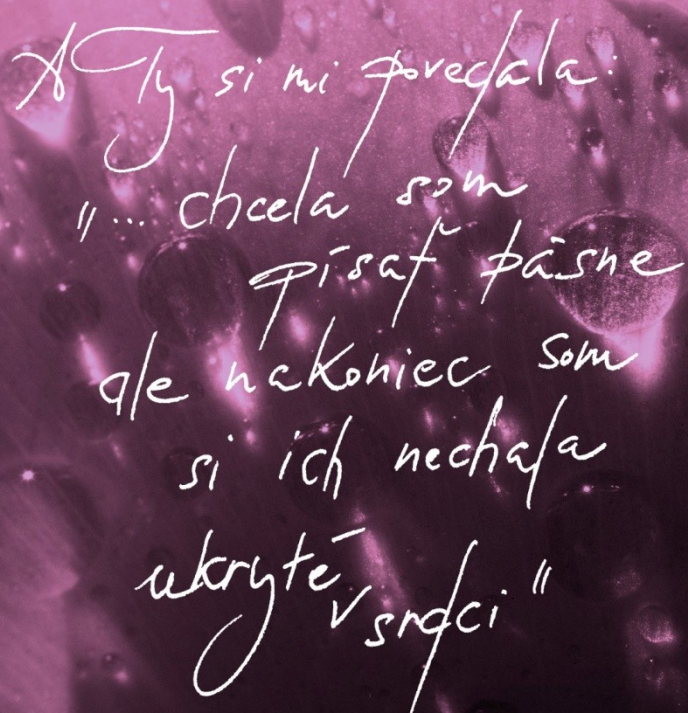 A Ty si mi povedala:
"... chcela som
písať básne
ale nakoniec som
si ich nechala
ukryté v srdci"